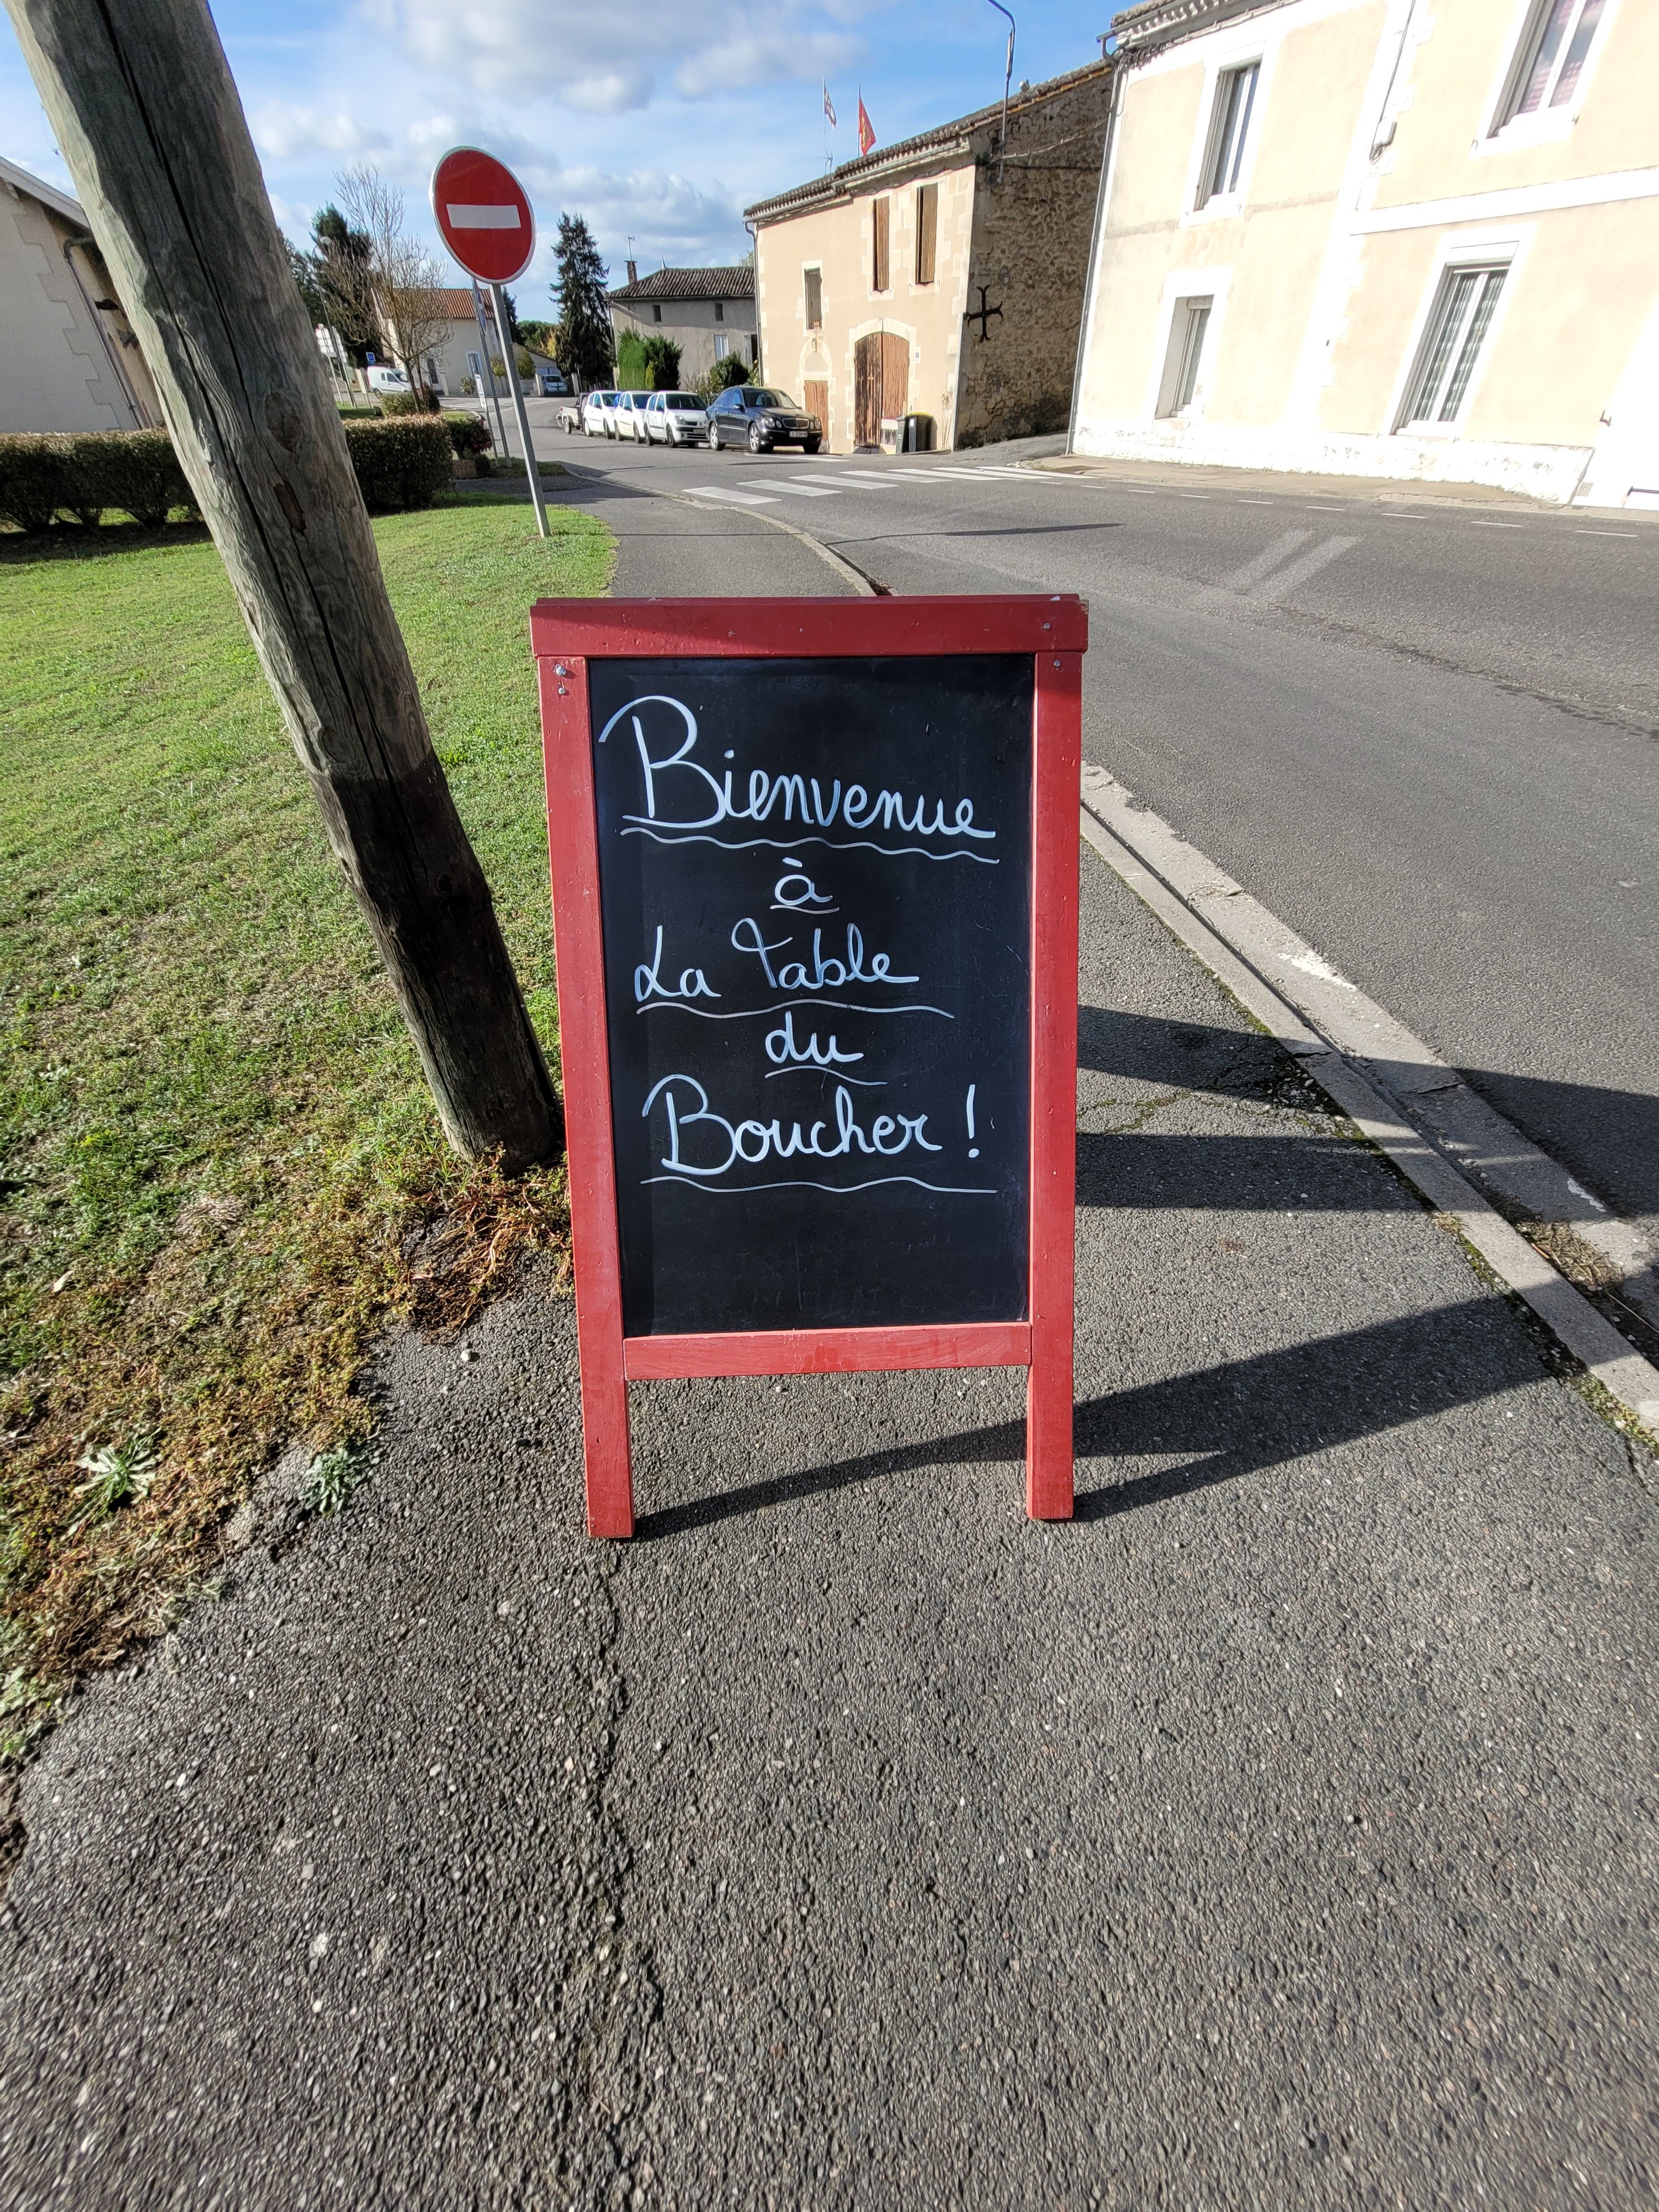 Bienvenue
à
La Table
du
Boucher !